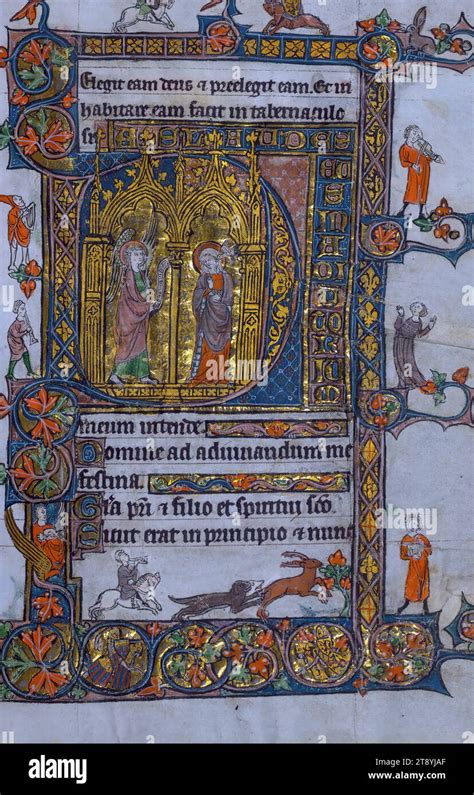 Elegit eam deus & preelegit eam. Et in
habitare eam facit in tabernaculo
meum intende
Domine ad adiuuandum me
festina.
Gl'a pri & filio et spiritui sco.
Sicut erat in principio & nunc
alamy
Image ID: 2T8YJAF
www.alamy.com